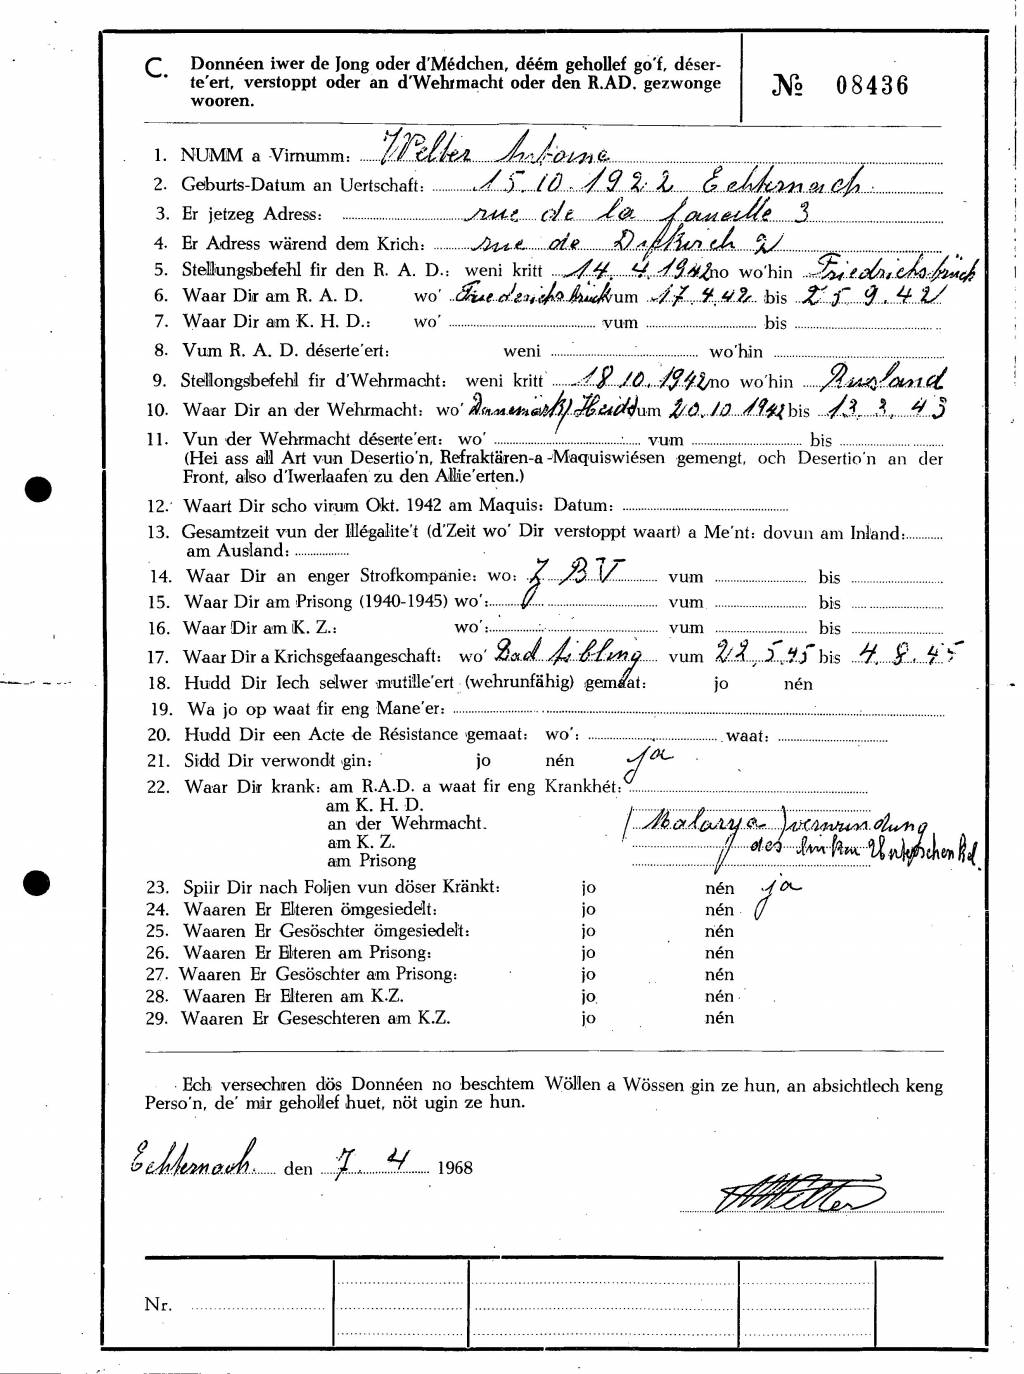 C. Donnéen iwer de Jong oder d'Médchen, déém gehollef go'f, déser-
te'ert, verstoppt oder an d'Wehrmacht oder den R.AD. gezwonge
wooren.
№ 08436
1. NUMM a Virnumm: Welter Antoine
2. Geburts-Datum an Uertschaft: 15.10.1922 Echternach
3. Er jetzeg Adress: rue de la 3
4. Er Adress wärend dem Krich: rue de Dipkirch 2
5. Stellungsbefehl fir den R. A. D.: weni kritt 14.4.1942 no wo'hin Friedrichsbrück
6. Waar Dir am R. A. D. wo' Friederichsbrück vum 17.4.42 bis 25.9.42
7. Waar Dir am K. H. D.: wo' vum bis
8. Vum R. A. D. déserte'ert: weni wo'hin
9. Stellongsbefehl fir d'Wehrmacht: weni kritt 18.10.1942 no wo'hin Rusland
10. Waar Dir an der Wehrmacht: wo' Danemark / vum 20.10.1942 bis 13.3.45
11. Vun der Wehrmacht déserte'ert: wo' vum bis
(Hei ass all Art vun Desertio'n, Refraktären-a-Maquiswiésen gemengt, och Desertio'n an der
Front, also d'Iwerlaafen zu den Allie'erten.)
12. Waart Dir scho virum Okt. 1942 am Maquis: Datum:
13. Gesamtzeit vun der Illégalite't (d'Zeit wo' Dir verstoppt waart) a Me'nt: dovun am Inland:
am Ausland:
14. Waar Dir an enger Strofkompanie: wo: Z BV vum bis
15. Waar Dir am Prisong (1940-1945) wo': vum bis
16. Waar Dir am K. Z.: wo': vum bis
17. Waar Dir a Krichsgefaangeschaft: wo' Bad Aibling vum 22.5.45 bis 4.8.45
18. Hudd Dir Iech selwer mutille'ert (wehrunfähig) gemaat: jo nén
19. Wa jo op waat fir eng Mane'er:
20. Hudd Dir een Acte de Résistance gemaat: wo': waat:
21. Sidd Dir verwondt gin: jo nén ja
22. Waar Dir krank: am R.A.D. a waat fir eng Krankhét:
am K. H. D.
an der Wehrmacht. (Malarya) verwundung
am K. Z. des linken
am Prisong
23. Spiir Dir nach Foljen vun döser Kränkt: jo nén ja
24. Waaren Er Elteren ömgesiedelt: jo nén
25. Waaren Er Gesöschter ömgesiedelt: jo nén
26. Waaren Er Elteren am Prisong: jo nén
27. Waaren Er Gesöschter am Prisong: jo nén
28. Waaren Er Elteren am K.Z. jo nén
29. Waaren Er Geseschteren am K.Z. jo nén
Ech versechren dös Donnéen no beschtem Wöllen a Wössen gin ze hun, an absichtlech keng
Perso'n, de' mir gehollef huet, nöt ugin ze hun.
Echternach den 7. 4 1968
AWelter
Nr.